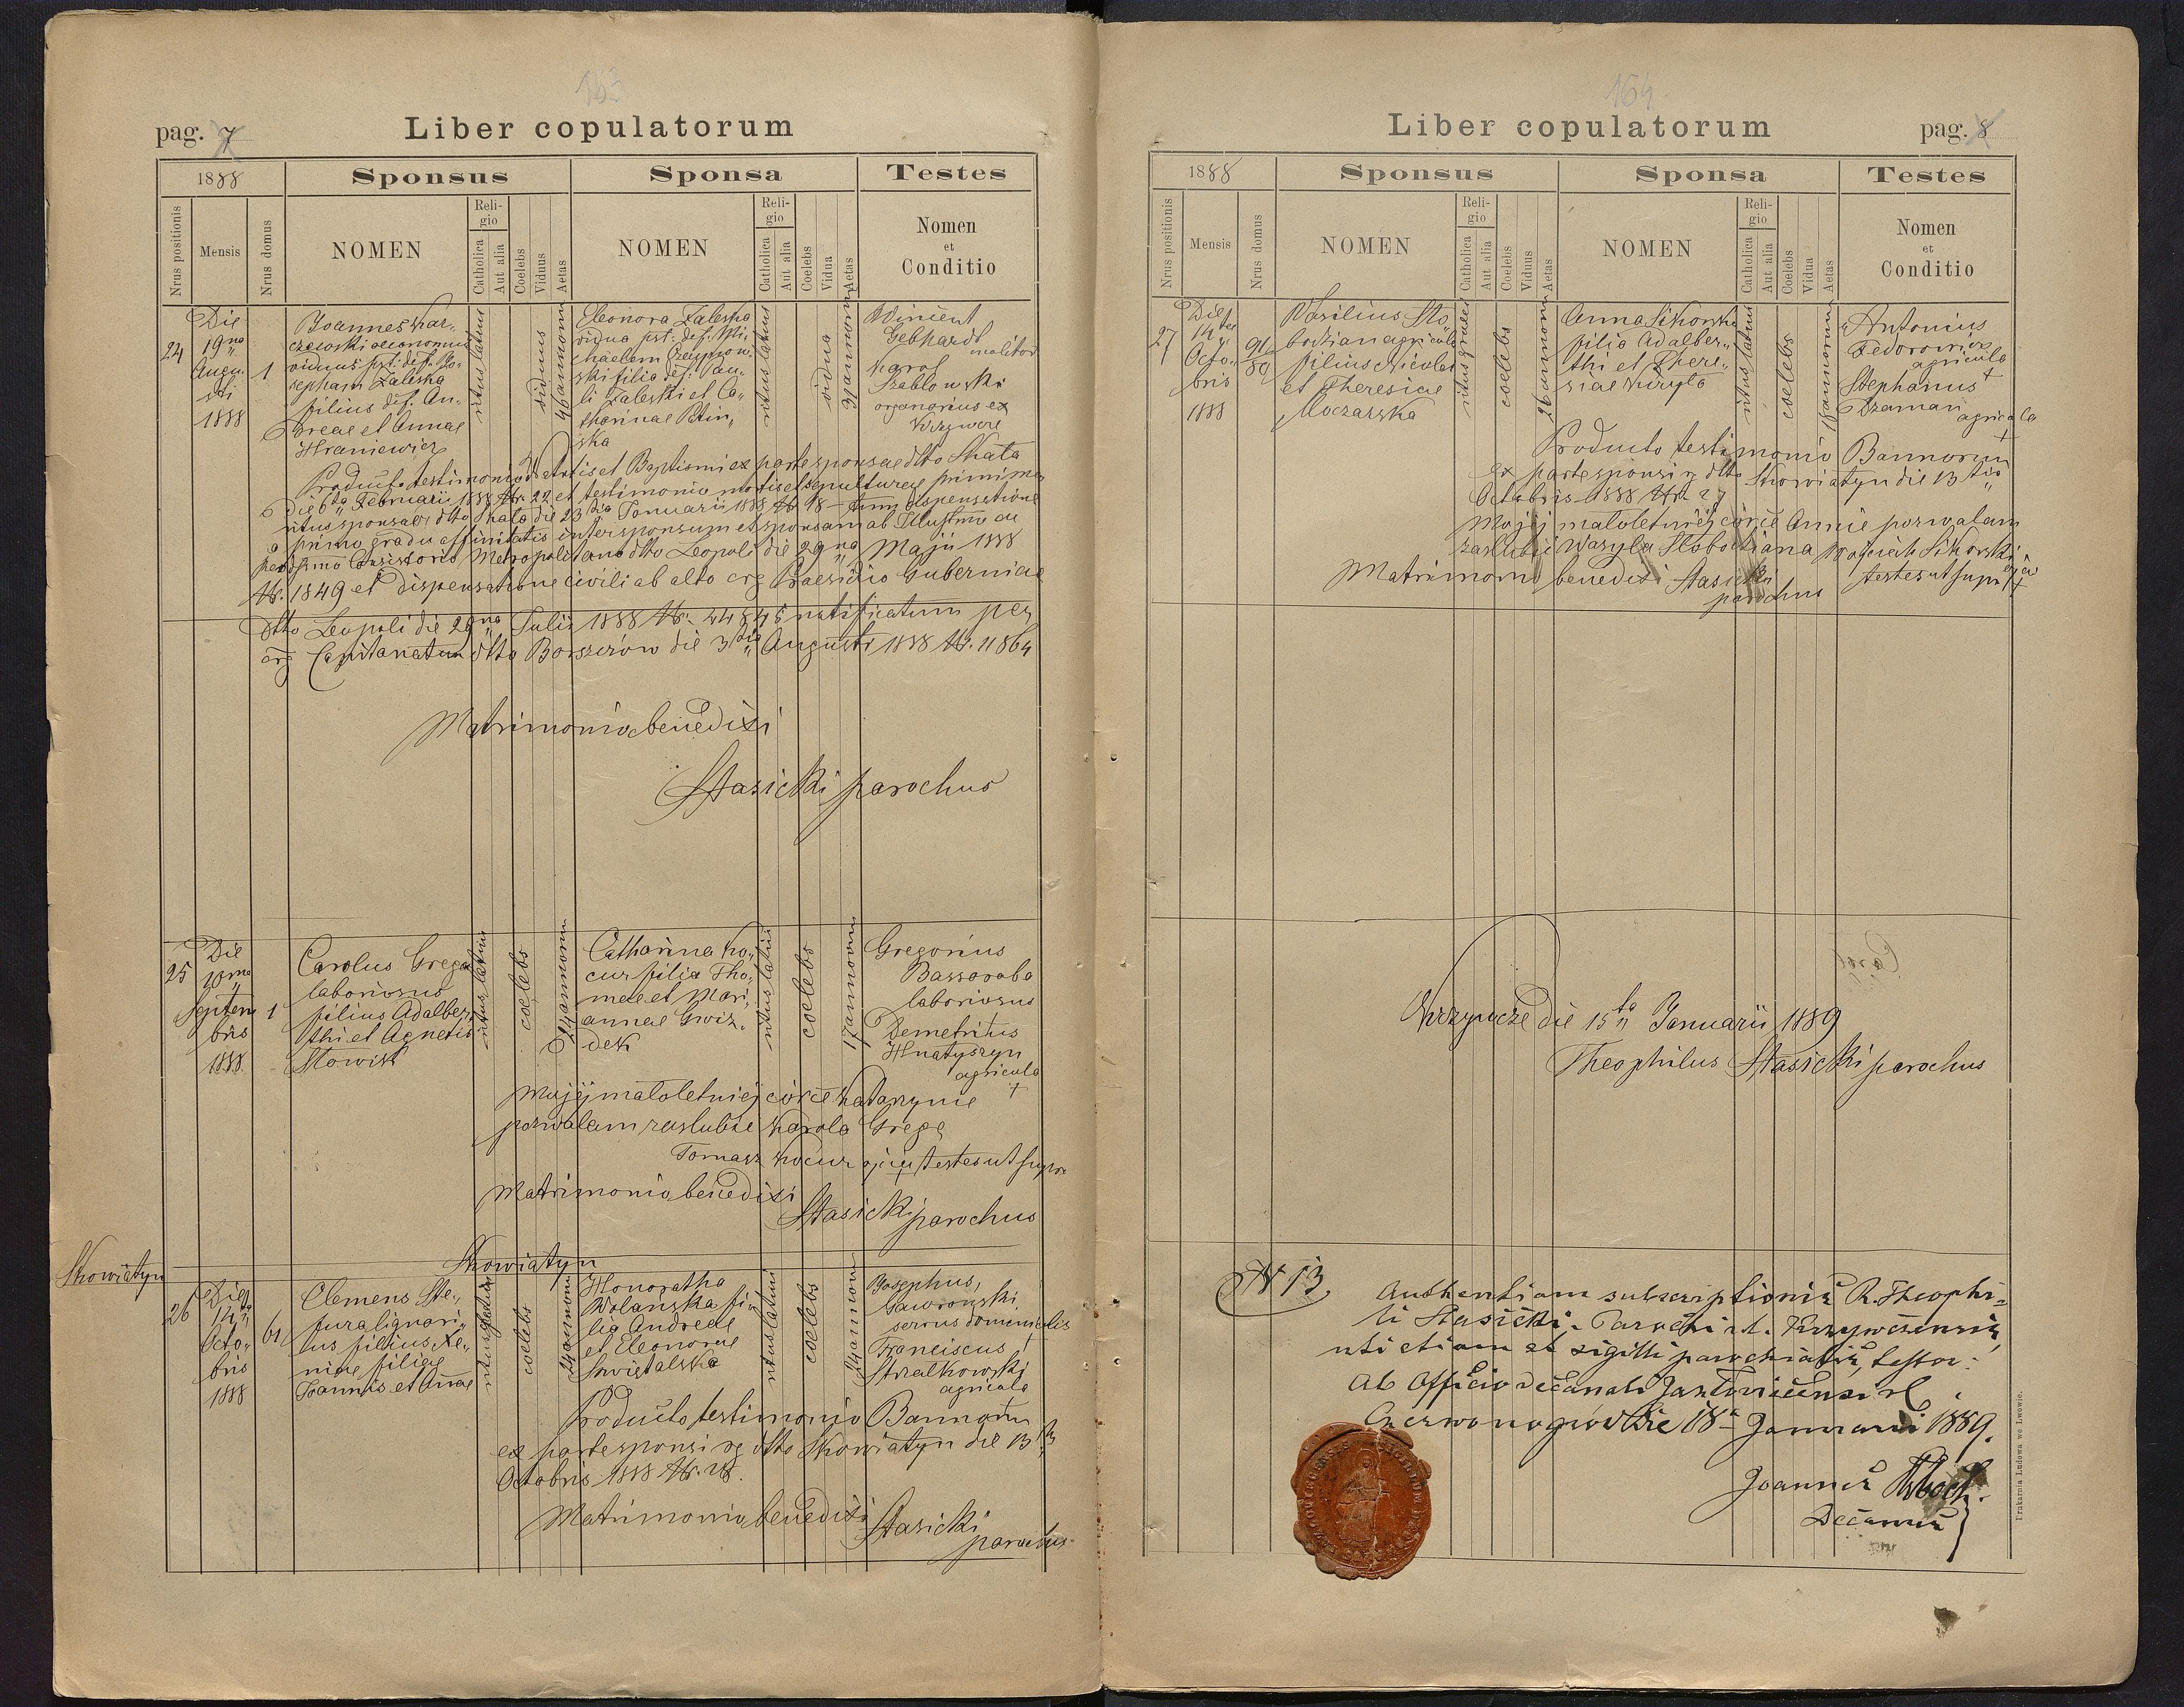 163
pag. 7
Liber copulatorum
1888
Sponsus
Sponsa
Testes
Nrus positionis
Mensis
Nrus domus
NOMEN
Religio
Catholica
Aut alia
Coelebs
Viduus
Aetas
NOMEN
Religio
Catholica
Aut alia
Coelebs
Vidua
Aetas
Nomen
et
Conditio
24
Die
19na
Augu-
sti
1888
1
Joannes Kar-
czewski oeconomus
viduus post def. Jo-
sepham Zaleska
filius def. An-
dreae et Annae
Hraniewicz
ritus latini
viduus
46 annorum
Eleonora Zaleska
vidua post def. Mi-
chaelem
ski filia def. Pau-
li Zaleski et Ca-
tharinae
ska
ritus latini
vidua
annorum
Vincent
Gebhardt
molitor
Karol
Szablowski
organarius ex
Krzywcze
Producto testimonio Baptismi ex parte sponsae dtto Skala
die 6ta Februarii 1888 Nr. 22 et testimonio mortis et sepulturae primi ma-
riti sponsae dtto Skala die 23tia Januarii 1888 Nr. 18 – tum dispensatione
a primo gradu affinitatis inter sponsum et sponsam ab Illustrmo ac
Consistorio Metropolitano dtto Leopoli die 29na Maji 1888
Nr. 1849 et dispensatione civili ab alto crg Praesidio Guberniae
dtto Leopoli die 29na Julii 1888 Nr. 44845 notificatum per
crg Capitanatum dtto Borszczów die 3tia Augusti 1888 Nr. 11864
Matrimonio benedixi
Stasicki parochus
25
Die
10ma
Septem
bris
1888
1
Carolus Grega
laboriosus
filius Adalber-
thi et Agnetis
Słowik
ritus latini
coelebs
24 annorum
Catharina Ko-
cur filia Tho-
mae et Mari-
annae Gwiz-
dek
ritus latini
coelebs
17 annorum
Gregorius
Bassaraba
laboriosus
Demetrius
Hnatyszyn
agricola
+
Mojej małoletniej córce Katarzynie
pozwalam zaślubić Karola Gregę
Tomasz Kocur ojciec testes ut supra
Matrimonio benedixi
Stasicki parochus
Skowiatyn
Skowiatyn
26
Die
14ta
Octo-
bris
1888
61
Clemens Ste-
fura lignari-
us filius Xe-
niae filiae
Joannis et Annae
ritus graeci
coelebs
24 annorum
Honoratha
Wolańska fi-
lia Andreae
et Eleonorae
Świstalska
ritus latini
coelebs
24 annorum
Josephus
Jaworowski
servus domenicalis
Franciscus +
Strzałkowski
agricola
Producto testimonio Bannorum
ex parte sponsi rg dtto Skowiatyn die 13tia
Octobris 1888 Nr. 28.
Matrimonio benedixi Stasicki
parochus
164
Liber copulatorum
pag. 8
1888
Sponsus
Sponsa
Testes
Nrus positionis
Mensis
Nrus domus
NOMEN
Religio
Catholica
Aut alia
Coelebs
Viduus
Aetas
NOMEN
Religio
Catholica
Aut alia
Coelebs
Vidua
Aetas
Nomen
et
Conditio
27
Die
14ta
Octo-
bris
1888
Wasilius Sło-
bodzian agricola
filius Nicolai
et Theresiae
Moczarska
ritus graeci
coelebs
26 annorum
Anna Sikorska
filia Adalber-
thi et There-
siae Kuryło
ritus latini
coelebs
annorum
Antonius
Fedorowicz
agricola
+
Stephanus
agricola
+
Producto testimonio Bannorum
ex parte sponsi rg dtto Skowiatyn die 13tia
Octobris 1888 Nr. 27
Mojej małoletniej córce Annie pozwalam
zaślubić Wasyla Słobodziana Wojciech Sikorski ojciec
testes ut supra
+
Matrimonio benedixi Stasicki
parochus
Krzywcze die 15ta Januarii 1889
Theophilus Stasicki parochus
N 13.
Authentiam subscriptionis R. Theophi-
li Stasicki. Parochi r.l. Krzywczensis,
uti etiam et sigilli parochialis, testor:
Ab Officio decanali Jazłoviecensi r.l.
Czerwonogród die 18a Januarii 1889.
Joannes
Decanus
Drukarnia Ludowa we Lwowie.